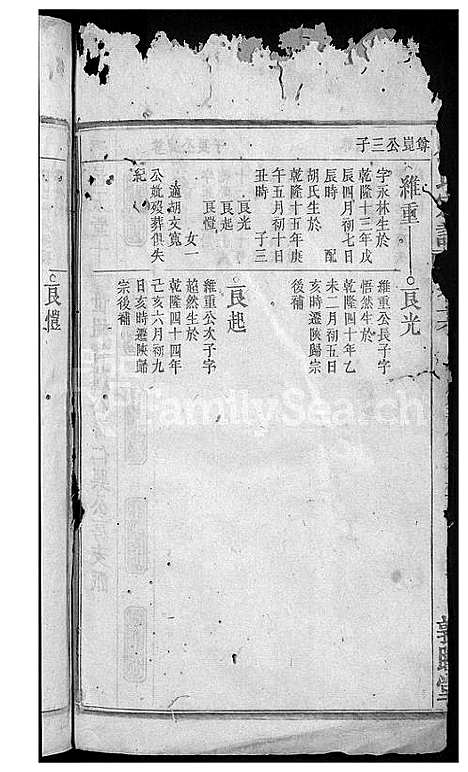 尊崑公三子
維重
字永林生於
乾隆十三年戊
辰四月初七日
辰時 配
胡氏生於
乾隆十五年庚
午五月初十日
丑時 子三
良光
良起
良愷
女一
適胡文寬
公妣歿葬俱失
紀
良光
維重公長子字
悟然生於
乾隆四十年乙
未二月初五日
亥時遷陝歸宗
後補
良起
維重公次子字
超然生於
乾隆四十四年
己亥六月初九
日亥時遷陝歸
宗後補
良愷
敦睦堂
FamilySearch